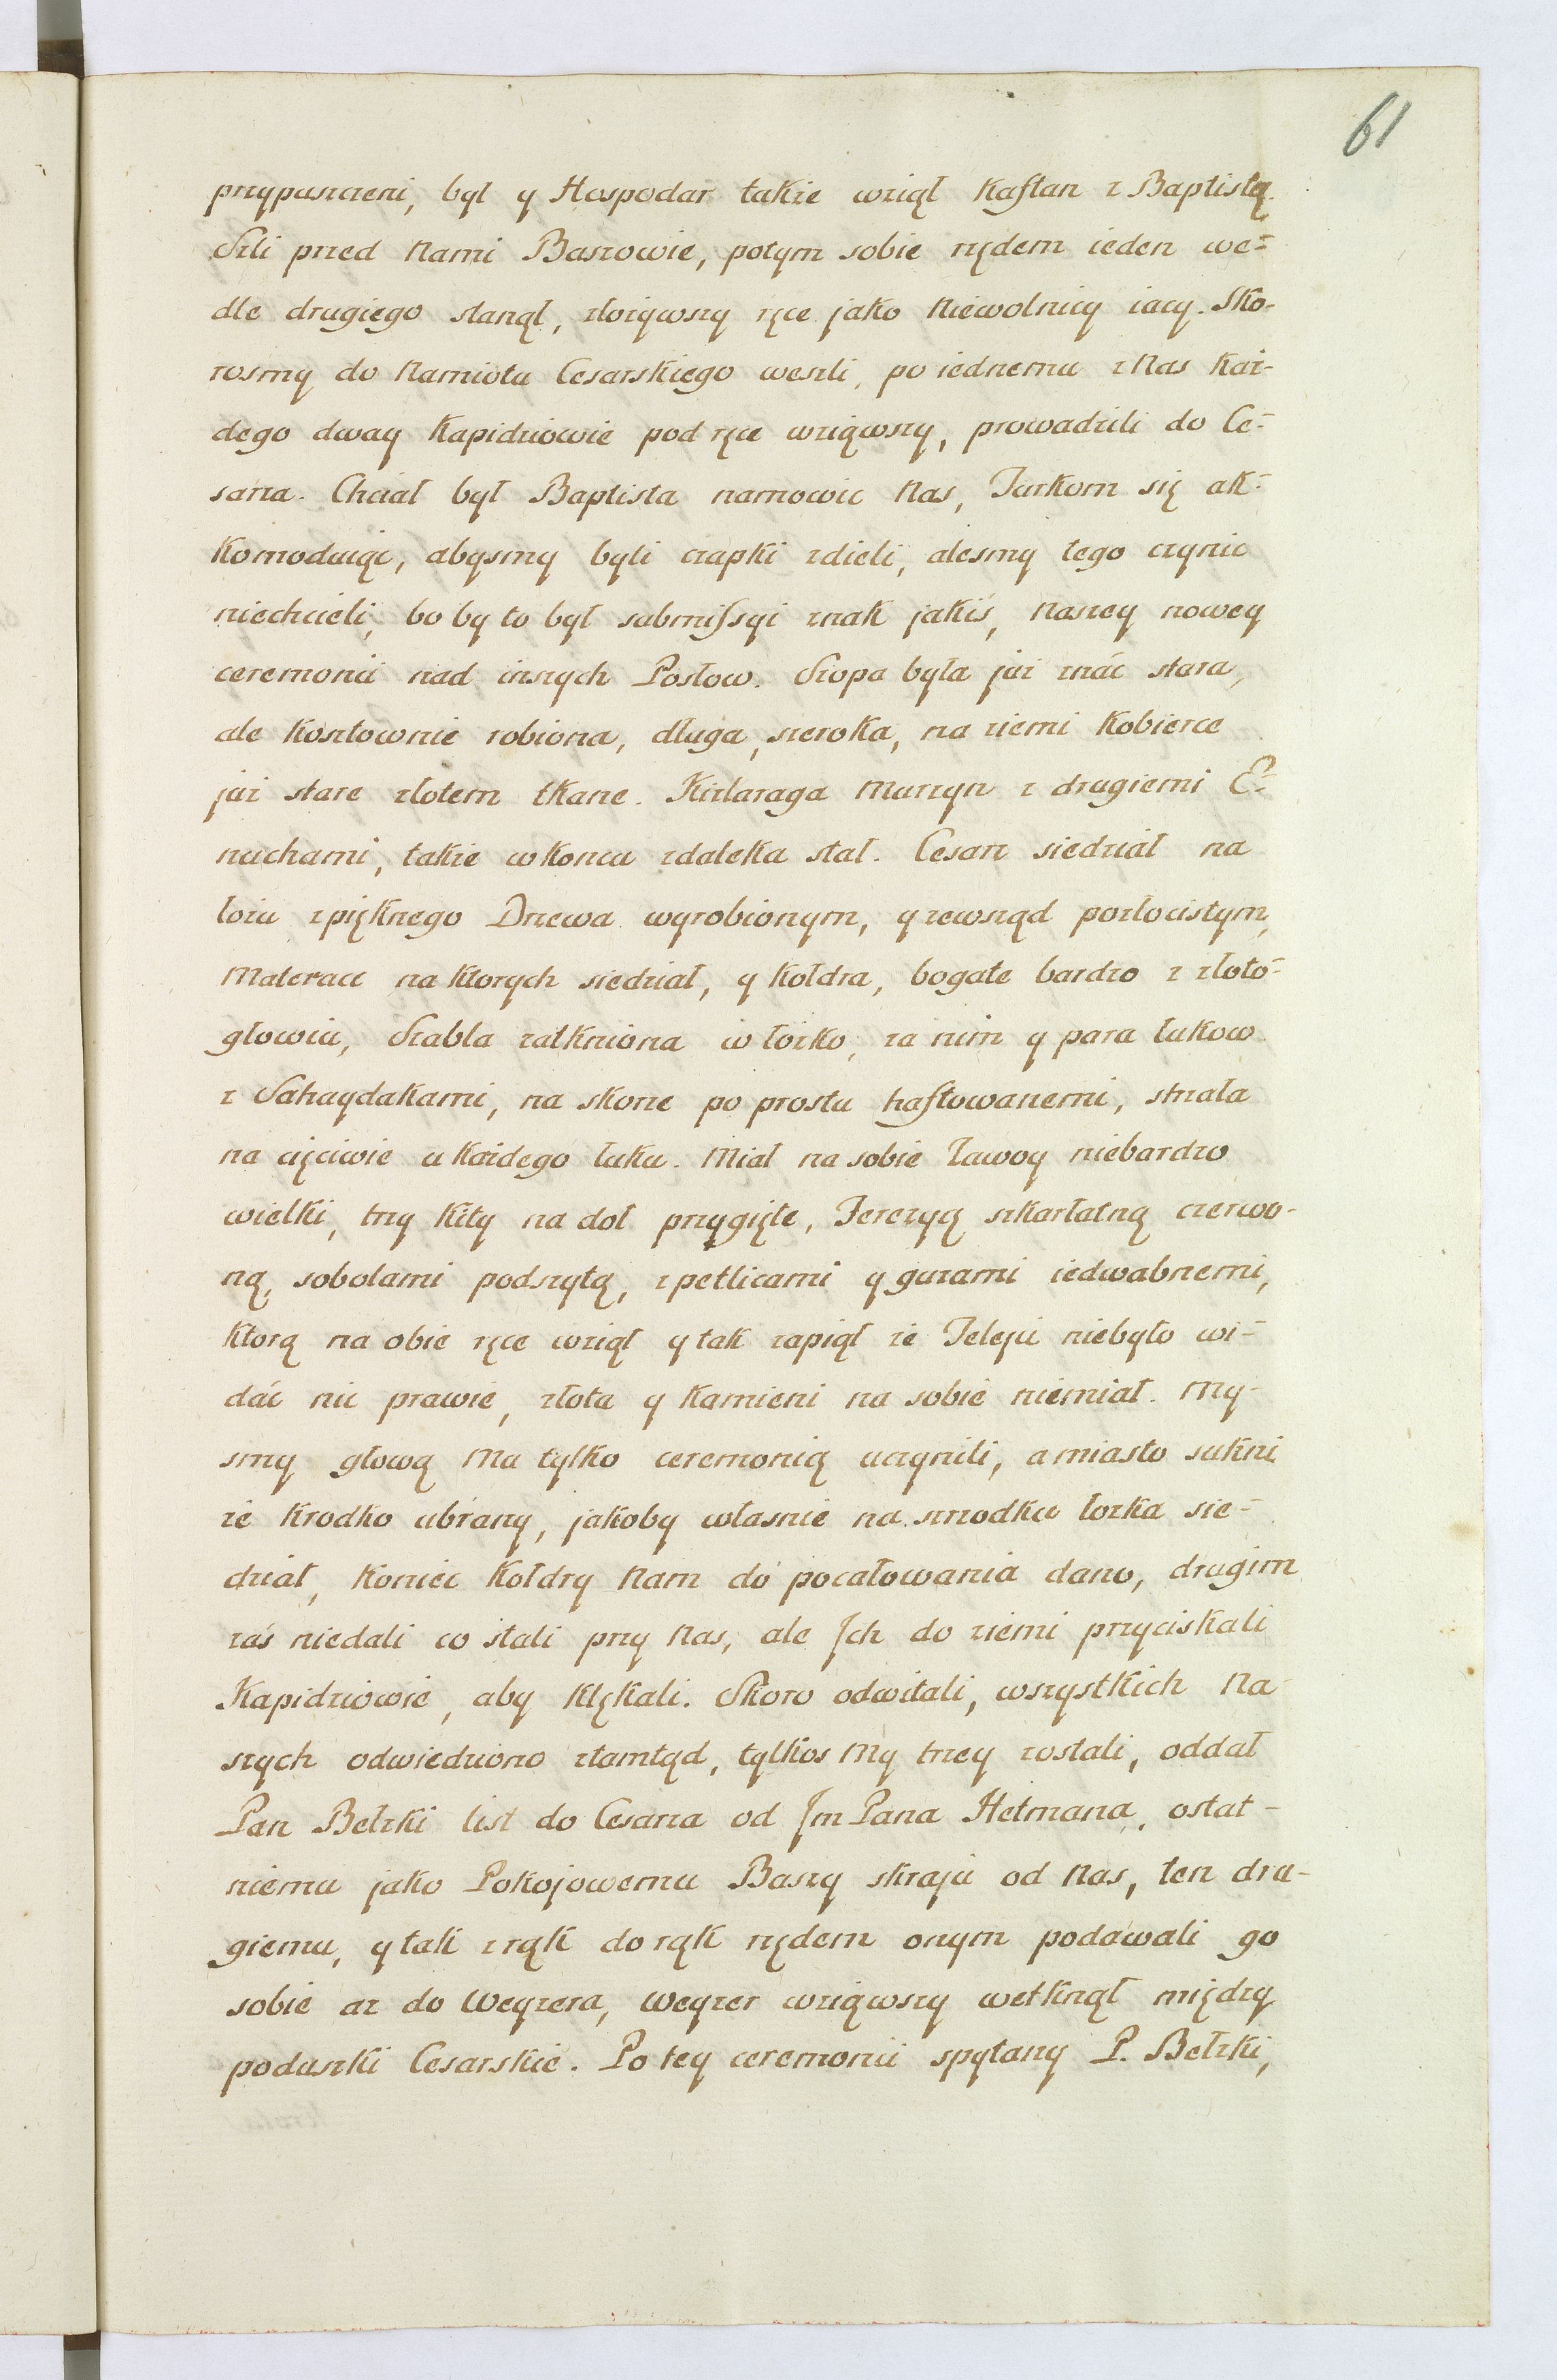 61
przypuszczeni, był y Hospodar także wziął kaftan z Baptistą.
Szli przed Nami Baszowie, potym sobie rzędem ieden we-
dle drugiego stanął, złożywszy ręce jako Niewolnicy iacy. Sko-
rosmy do Namiotu Cesarskiego weszli, po iednemu z Nas każ-
dego dway Kapidziowie pod ręce wziąwszy, prowadzili do Ce-
sarza. Chciał był Baptista namowic Nas, Turkom się ak-
komoduiąc, abysmy byli czapki zdieli, alesmy tego czynic
niechcieli, bo by to był submissyi znak jakiś, naszey nowey
ceremonii nad inszych Posłow. Szopa była już znać stara,
ale kosztownie robiona, długa, szeroka, na ziemi Kobierce
już stare złotem tkane. Kizlaraga Murzyn z drugiemi E-
nuchami, także w koncu zdaleka stał. Cesarz siedział na
łożu z pięknego Drzewa wyrobionym, y zewsząd pozłocistym,
Materace na ktorych siedział, y kołdra, bogate bardzo z złoto-
głowiu, Szabla zatkniona w łożko, za nim y para łukow
z Sahaydakami, na skorze po prostu haftowanemi, strzała
na cięciwie u każdego łuku. Miał na sobie Zawoy niebardzo
wielki, trzy kity na doł przygięte, Ferezyą szkarłatną czerwo-
ną, sobolami podszytą, z petlicami y guzami iedwabnemi,
ktorą na obie ręce wziął y tak zapiął że Feleżii niebyło wi-
dać nic prawie, złota y kamieni na sobie niemiał. My-
smy głową Mu tylko ceremonią uczynili, a miasto sukni
że krodko ubrany, jakoby własnie na szrzodku łożka sie-
dział, koniec kołdry Nam do pocałowania dano, drugim
zaś niedali co stali przy Nas, ale Ich do ziemi przyciskali
Kapidziowie, aby klękali. Skoro odwitali, wszystkich Na-
szych odwiedziono ztamtąd, tylkos My trzey zostali, oddał
Pan Bełzki list do Cesarza od Jm Pana Hetmana, ostat-
niemu jako Pokojowemu Baszy skraju od Nas, ten dru-
giemu, y tak z rąk do rąk rzędem onym podawali go
sobie az do Weyzera, Weyzer wziąwszy wetknął między
poduszki Cesarskie. Po tey ceremonii spytany P. Bełzki,